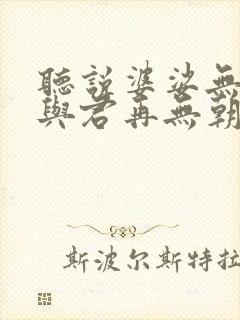 聽説婆娑無
與君再無朝
斯波尔斯特拉